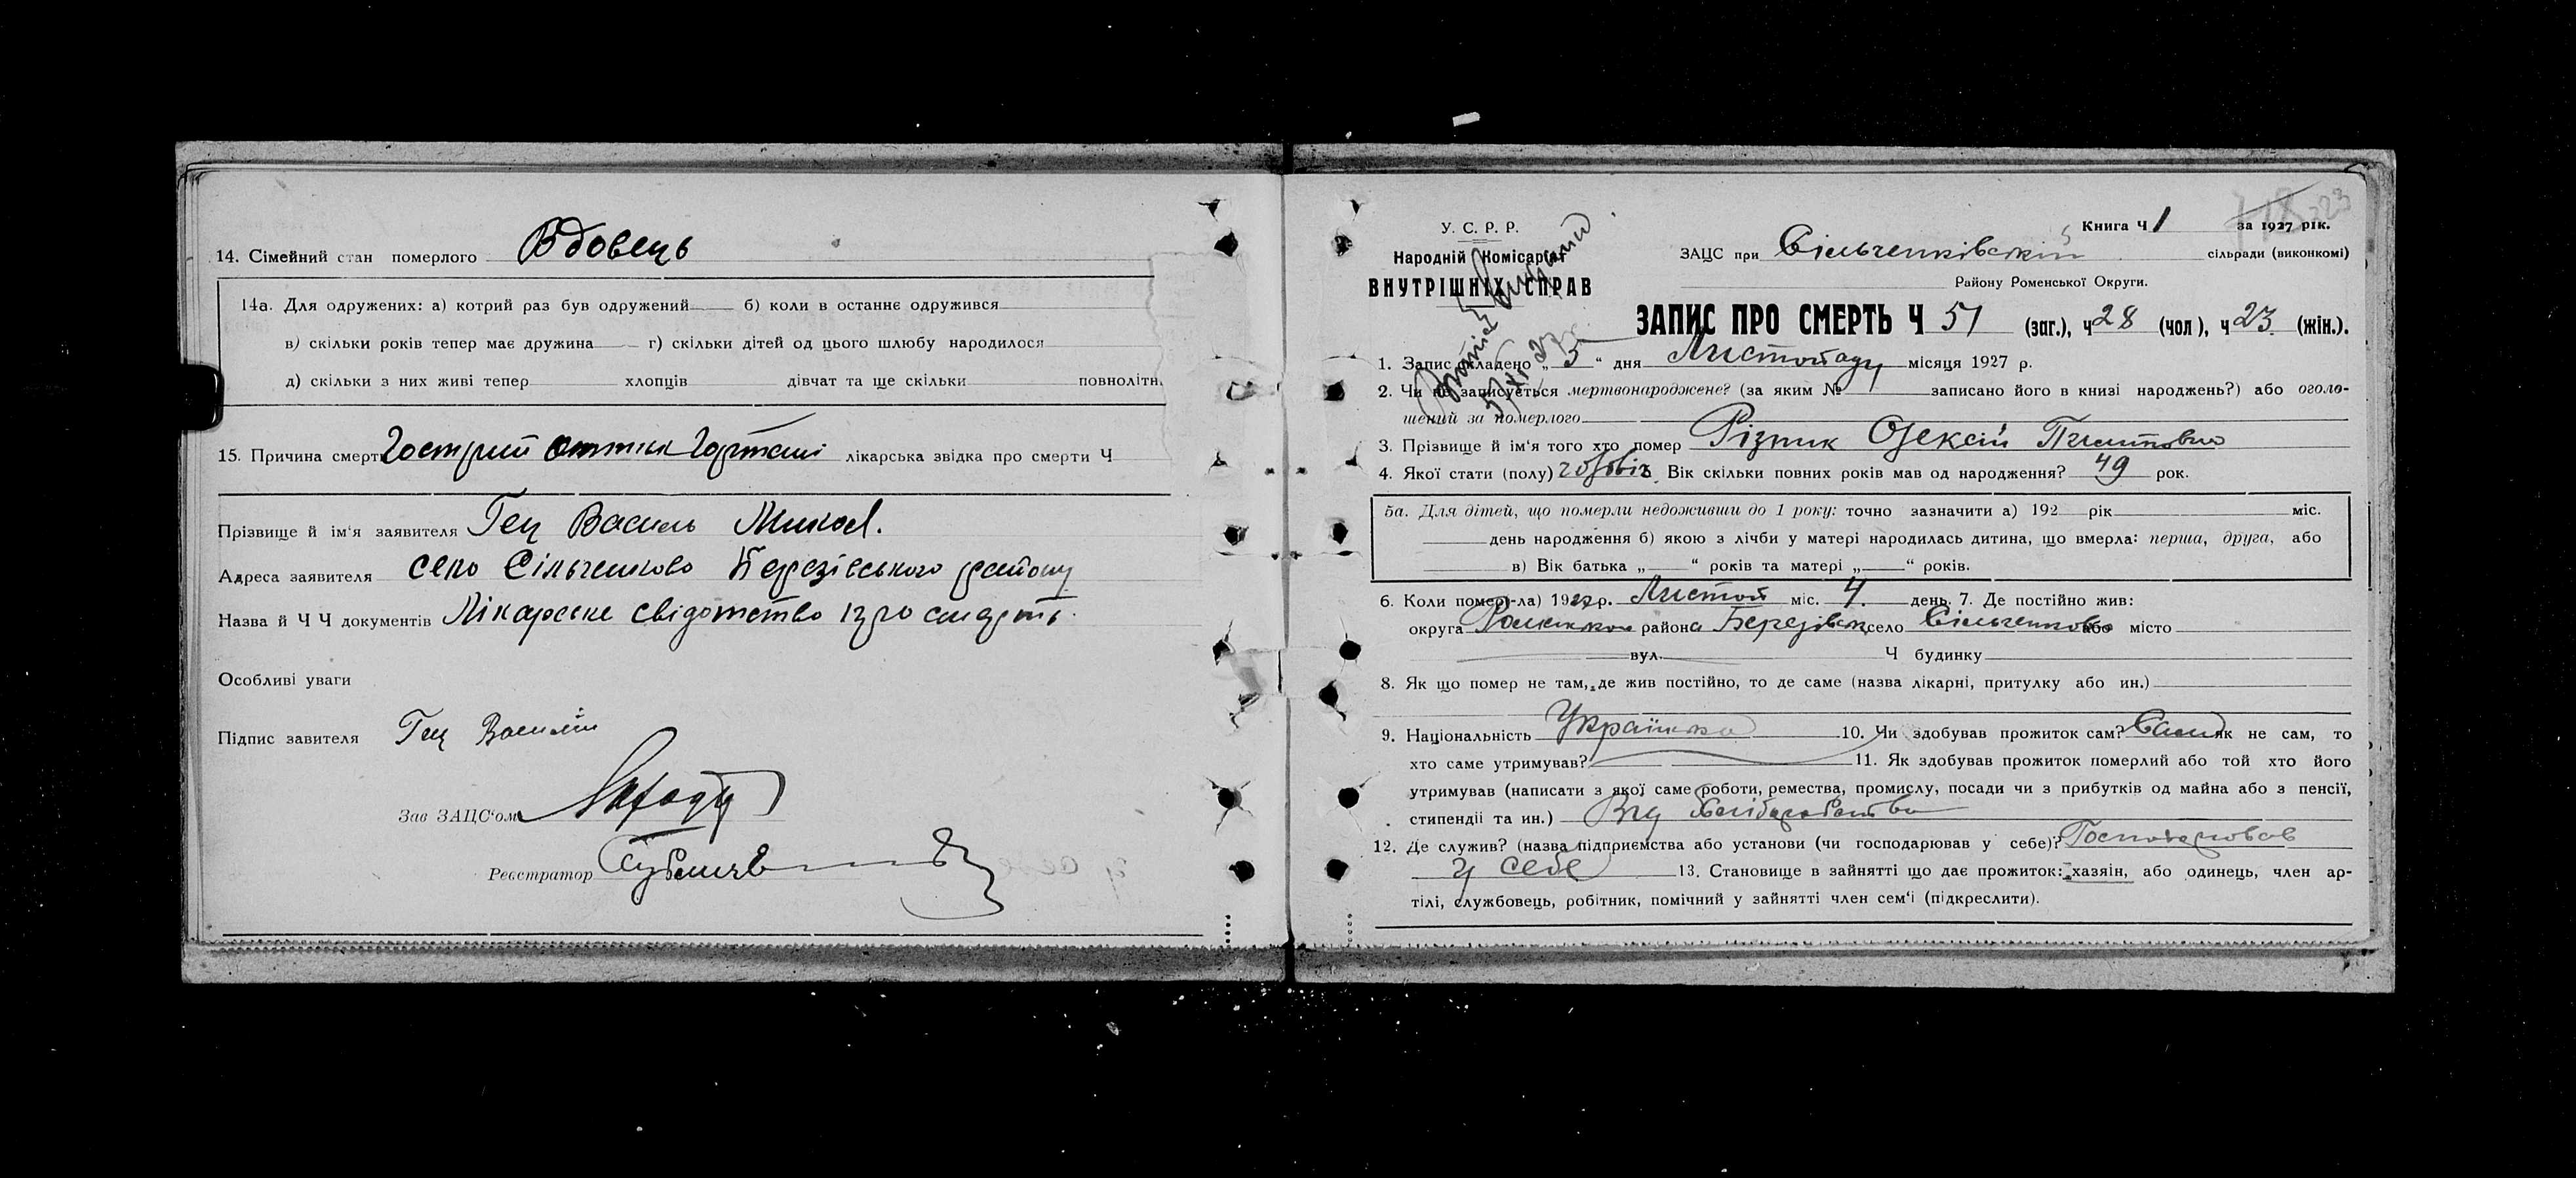 14. Сімейний стан померлого Вдовець
14а. Для одружених: а) котрий раз був одружений б) коли в останнє одружився
в) скільки років тепер має дружина г) скільки дітей од цього шлюбу народилося
д) скільки з них живі тепер хлопців дівчат та ще скільки повнолітн
15. Причина смерт Гострий оттик Гортані лікарська звідка про смерти Ч
Прізвище й ім'я заявителя Гец Василь Микол.
Адреса заявителя село Сільченково Березівського району
Назва й Ч Ч документів Лікарське свідотство про смерть.
Особливі уваги
Підпис завителя Гец Василій
Зав ЗАЦС'ом
Реєстратор
У. С. Р. Р.
Народній Комісаріат
ВНУТРІШНІХ СПРАВ
Книга Ч 1 за 1927 рік.
ЗАЦС при Сільченківській сільради (виконкомі)
Району Роменської Округи.
ЗАПИС ПРО СМЕРТЬ Ч 51 (заг.), ч 28 (чол), ч 23 (жін.).
1. Запис складено „ 5 " дня Листопаду місяця 1927 р.
2. Чи не записується мертвонароджене? (за яким № записано його в книзі народжень?) або оголо-
шений за померлого
3. Прізвище й ім'я того хто помер Різник Олексій
4. Якої стати (полу) чоловіч. Вік скільки повних років мав од народження? 49 рок.
5а. Для дітей, що померли недоживши до 1 року: точно зазначити а) 192 рік міс.
день народження б) якою з лічби у матері народилась дитина, що вмерла: перша, друга, або
в) Вік батька „ " років та матері „ " років.
6. Коли помер(-ла) 1927 р. Листоп міс. 4. день. 7. Де постійно жив:
округа Роменська района Березівськ село Сільченково або місто
вул. Ч будинку
8. Як що помер не там, де жив постійно, то де саме (назва лікарні, притулку або ин.)
9. Національність Українка 10. Чи здобував прожиток сам? Сам як не сам, то
хто саме утримував? 11. Як здобував прожиток померлий або той хто його
утримував (написати з якої саме роботи, ремества, промислу, посади чи з прибутків од майна або з пенсії,
стипендії та ин.) Від хліборобства
12. Де служив? (назва підприємства або установи (чи господарював у себе)? Господарював
у себе 13. Становище в зайнятті що дає прожиток: хазяін, або одинець, член ар-
тілі, службовець, робітник, помічний у зайнятті член сем'ї (підкреслити).